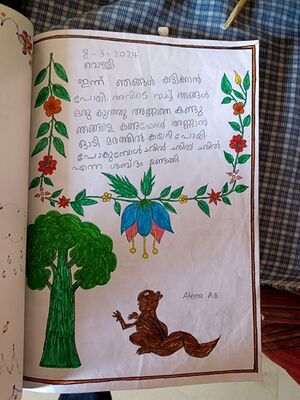 8-3-2024
വെള്ളി
ഇന്ന് ഞങ്ങൾ കളിക്കാൻ
പോയി. അവിടെ വച്ച് ഞങ്ങൾ
ഒരു കുഞ്ഞു അണ്ണാനെ കണ്ടു
ഞങ്ങളെ കണ്ടപ്പോൾ അണ്ണാൻ
ഓടി മരത്തിൽ കയറി പോയി
പോകുമ്പോൾ ഛിൽ ഛിൽ ഛിൽ
എന്ന ശബ്ദം ഉണ്ടാക്കി
Aleena AB